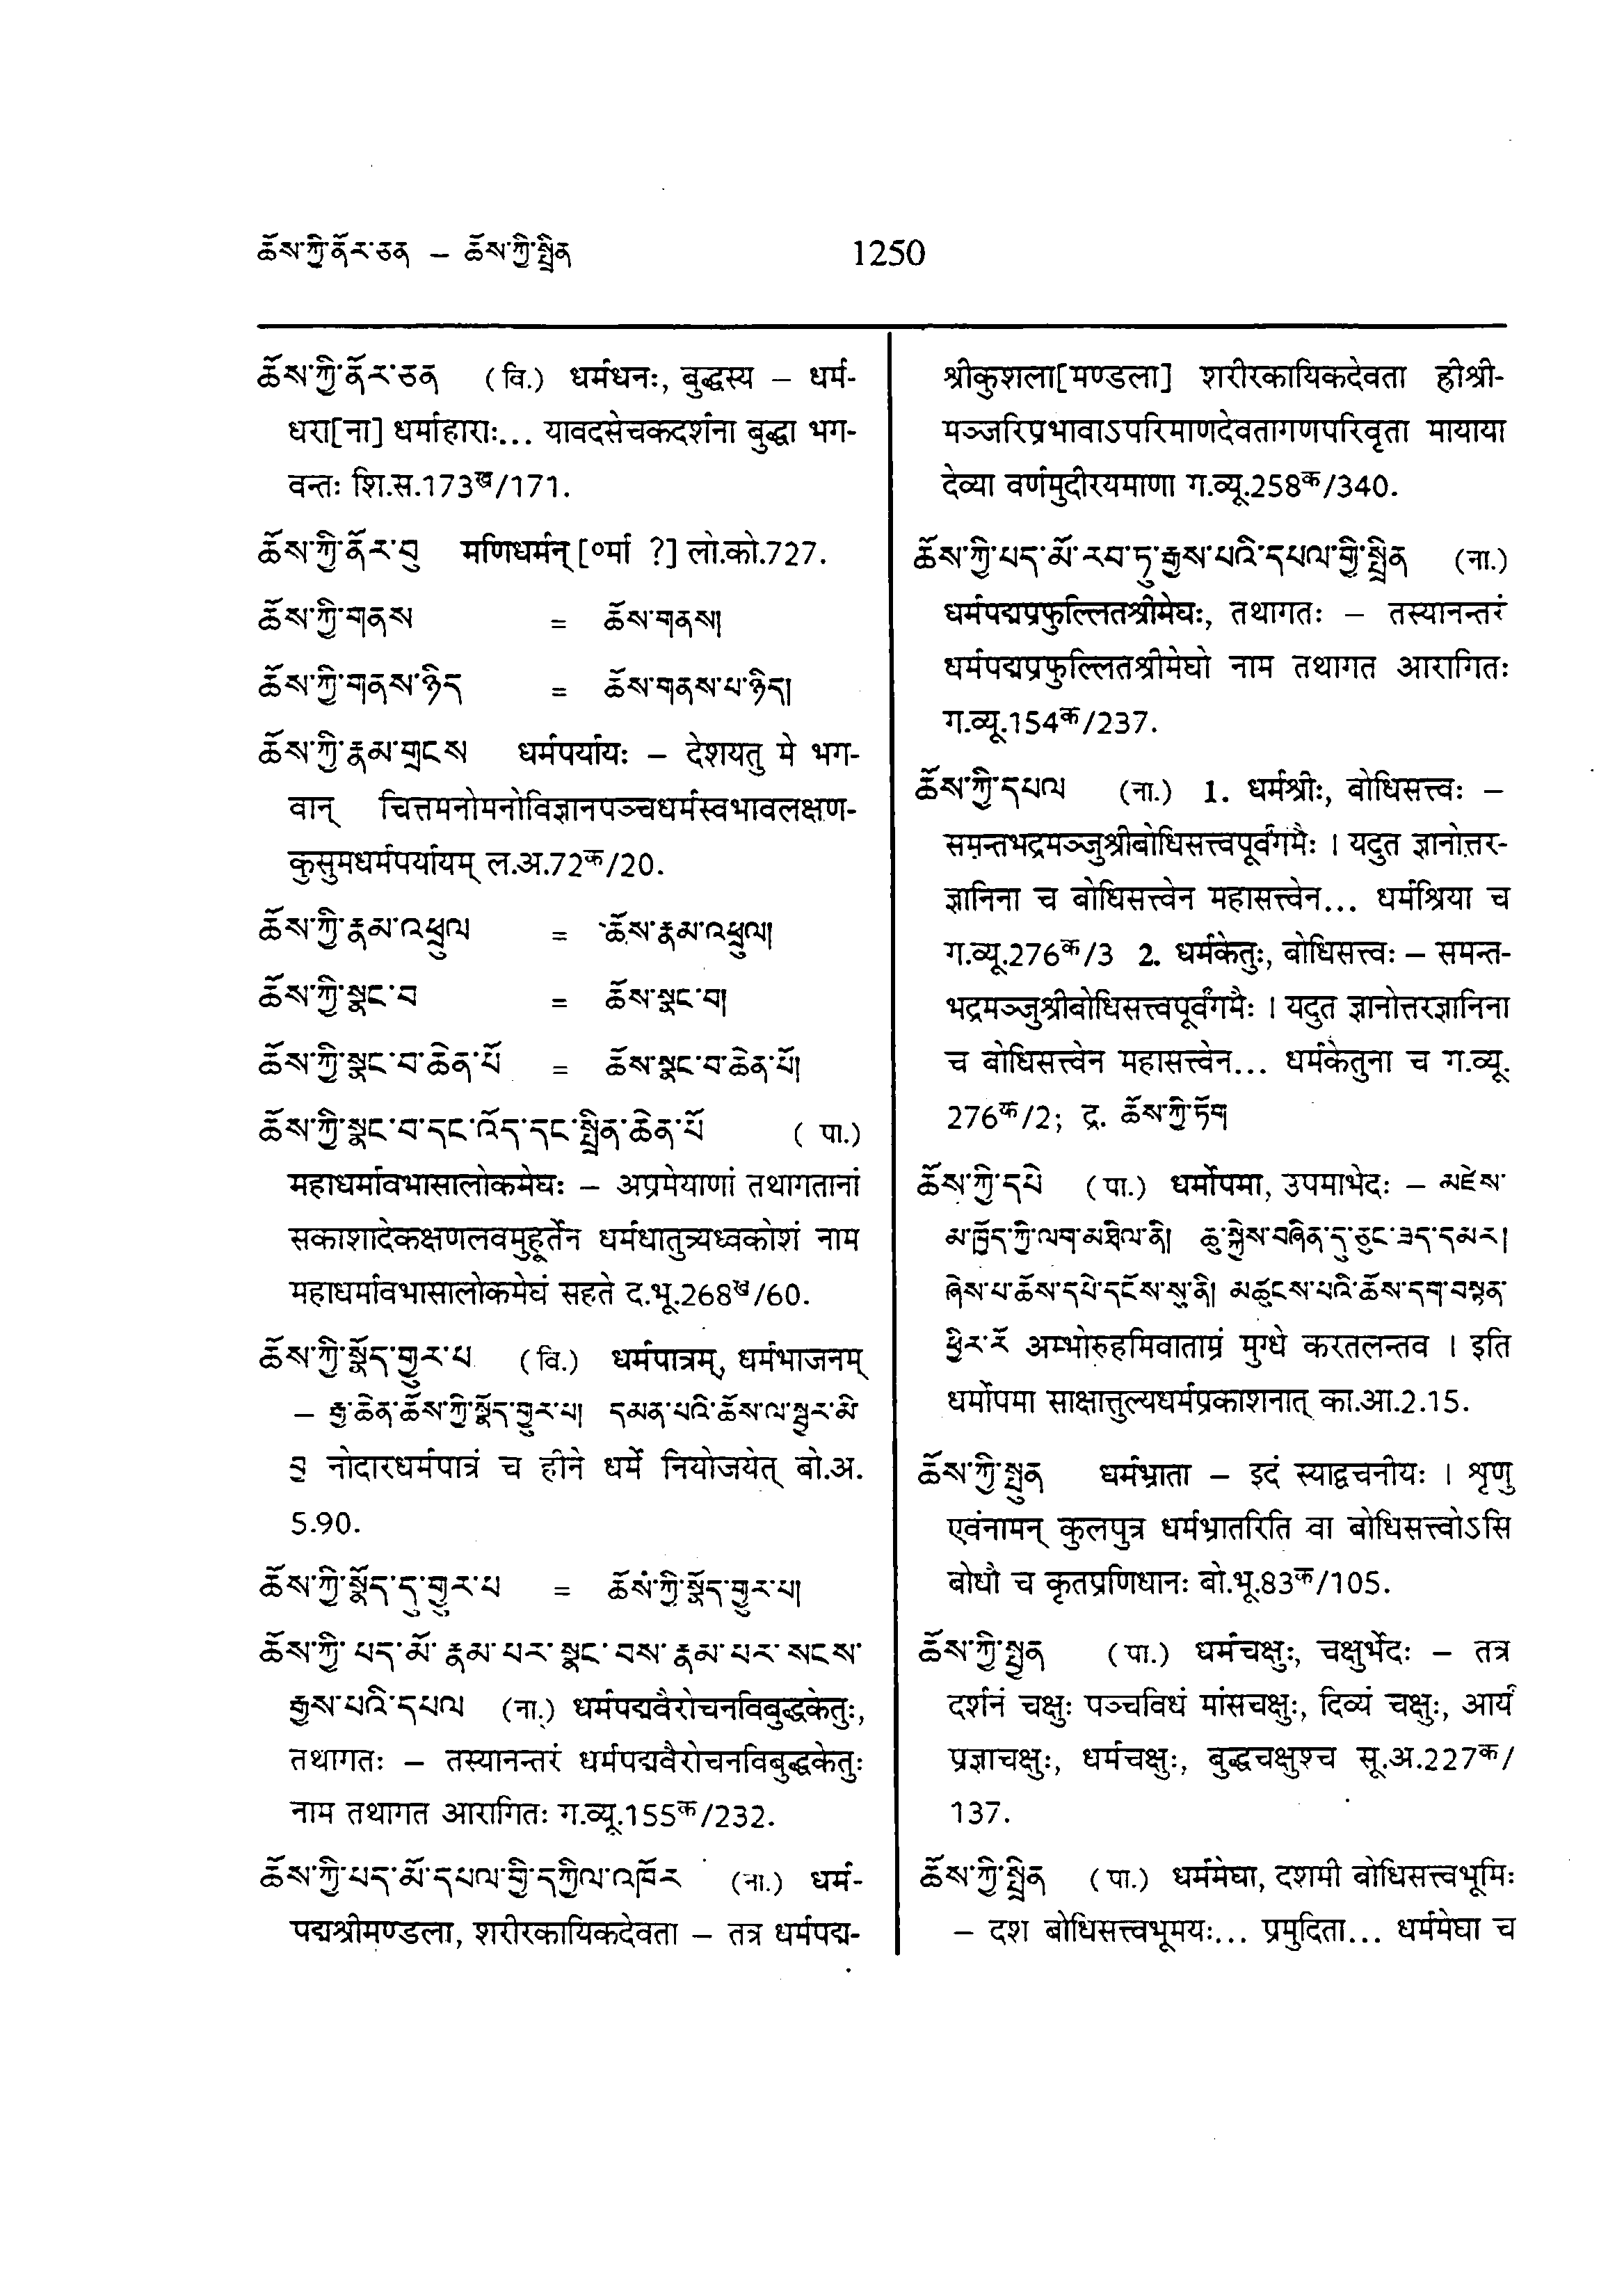 ཆོས་ཀྱི་ནོར་ཅན – ཆོས་ཀྱི་སྤྲིན
1250
ཆོས་ཀྱི་ནོར་ཅན (वि.) धर्मधनः, बुद्धस्य – धर्म-
धरा[ना] धर्माहाराः... यावदसेचकदर्शना बुद्धा भग-
वन्तः शि.स.173ख/171.
ཆོས་ཀྱི་ནོར་བུ मणिधर्मन् [०र्मा ?] लो.को.727.
ཆོས་ཀྱི་གནས = ཆོས་གནས།
ཆོས་ཀྱི་གནས་ཉིད = ཆོས་གནས་པ་ཉིད།
ཆོས་ཀྱི་རྣམ་གྲངས धर्मपर्यायः – देशयतु मे भग-
वान् चित्तमनोमनोविज्ञानपञ्चधर्मस्वभावलक्षण-
कुसुमधर्मपर्यायम् ल.अ.72क/20.
ཆོས་ཀྱི་རྣམ་འཕྲུལ = ཆོས་རྣམ་འཕྲུལ།
ཆོས་ཀྱི་སྣང་བ = ཆོས་སྣང་བ།
ཆོས་ཀྱི་སྣང་བ་ཆེན་པོ = ཆོས་སྣང་བ་ཆེན་པོ།
ཆོས་ཀྱི་སྣང་བ་དང་འོད་དང་སྤྲིན་ཆེན་པོ (पा.)
महाधर्मावभासालोकमेघः – अप्रमेयाणां तथागतानां
सकाशादेकक्षणलवमुहूर्तेन धर्मधातुत्र्यध्वकोशं नाम
महाधर्मावभासालोकमेघं सहते द.भू.268ख/60.
ཆོས་ཀྱི་སྣོད་གྱུར་པ (वि.) धर्मपात्रम्, धर्मभाजनम्
– རྒྱ་ཆེན་ཆོས་ཀྱི་སྣོད་གྱུར་པ། དམན་པའི་ཆོས་ལ་སྦྱར་མི་
བྱ नोदारधर्मपात्रं च हीने धर्मे नियोजयेत् बो.अ.
5.90.
ཆོས་ཀྱི་སྣོད་དུ་གྱུར་པ = ཆོས་ཀྱི་སྣོད་གྱུར་པ།
ཆོས་ཀྱི་ པད་མོ་ རྣམ་ པར་ སྣང་ བས་ རྣམ་ པར་ སངས་
རྒྱས་པའི་དཔལ (ना.) धर्मपद्मवैरोचनविबुद्धकेतुः,
तथागतः – तस्यानन्तरं धर्मपद्मवैरोचनविबुद्धकेतुः
नाम तथागत आरागितः ग.व्यू.155क/232.
ཆོས་ཀྱི་པད་མོ་དཔལ་གྱི་དཀྱིལ་འཁོར (ना.) धर्म-
पद्मश्रीमण्डला, शरीरकायिकदेवता – तत्र धर्मपद्म-
श्रीकुशला[मण्डला] शरीरकायिकदेवता ह्रीश्री-
मञ्जरिप्रभावाऽपरिमाणदेवतागणपरिवृता मायाया
देव्या वर्णमुदीरयमाणा ग.व्यू.258क/340.
ཆོས་ཀྱི་པད་མོ་རབ་ཏུ་རྒྱས་པའི་དཔལ་གྱི་སྤྲིན (ना.)
धर्मपद्मप्रफुल्लितश्रीमेघः, तथागतः – तस्यानन्तरं
धर्मपद्मप्रफुल्लितश्रीमेघो नाम तथागत आरागितः
ग.व्यू.154क/237.
ཆོས་ཀྱི་དཔལ (ना.) 1. धर्मश्रीः, बोधिसत्त्वः –
समन्तभद्रमञ्जुश्रीबोधिसत्त्वपूर्वंगमैः । यदुत ज्ञानोत्तर-
ज्ञानिना च बोधिसत्त्वेन महासत्त्वेन... धर्मश्रिया च
ग.व्यू.276क/3 2. धर्मकेतुः, बोधिसत्त्वः – समन्त-
भद्रमञ्जुश्रीबोधिसत्त्वपूर्वंगमैः । यदुत ज्ञानोत्तरज्ञानिना
च बोधिसत्त्वेन महासत्त्वेन... धर्मकेतुना च ग.व्यू.
276क/2; द्र. ཆོས་ཀྱི་ཏོག
ཆོས་ཀྱི་དཔེ (पा.) धर्मोपमा, उपमाभेदः – མཛེས་
མ་ཁྱོད་ཀྱི་ལག་མཐིལ་ནི། ཆུ་སྐྱེས་བཞིན་དུ་ཅུང་ཟད་དམར།
ཞེས་པ་ཆོས་དཔེ་དངོས་སུ་ནི། མཚུངས་པའི་ཆོས་དག་བསྟན་
ཕྱིར་རོ अम्भोरुहमिवाताम्रं मुग्धे करतलन्तव । इति
धर्मोपमा साक्षात्तुल्यधर्मप्रकाशनात् का.आ.2.15.
ཆོས་ཀྱི་སྤུན धर्मभ्राता – इदं स्याद्वचनीयः । शृणु
एवंनामन् कुलपुत्र धर्मभ्रातरिति वा बोधिसत्त्वोऽसि
बोधौ च कृतप्रणिधानः बो.भू.83क/105.
ཆོས་ཀྱི་སྤྱན (पा.) धर्मचक्षुः, चक्षुर्भेदः – तत्र
दर्शनं चक्षुः पञ्चविधं मांसचक्षुः, दिव्यं चक्षुः, आर्यं
प्रज्ञाचक्षुः, धर्मचक्षुः, बुद्धचक्षुश्च सू.अ.227क/
137.
ཆོས་ཀྱི་སྤྲིན (पा.) धर्ममेघा, दशमी बोधिसत्त्वभूमिः
– दश बोधिसत्त्वभूमयः... प्रमुदिता... धर्ममेघा च